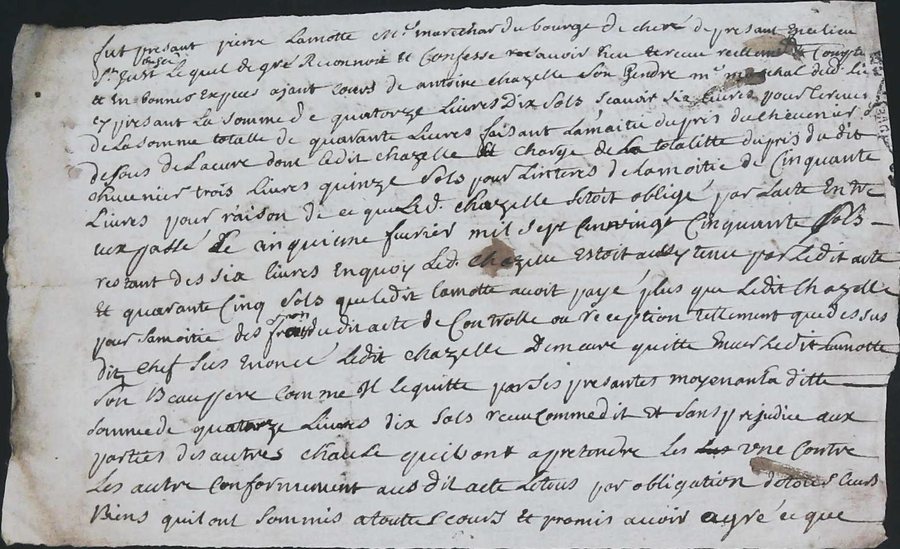 fut presant pierre Lamotte me marechar du bourge de cheré de presant en ce lieu
st just Lequel de gré Reconnoit et Confesse avoir Eu et receu reellement Compte
et En bonnes Expces ajant Cours de antoine chazelle son Gendre me marechal dud. Lie
cy presant La somme de quatorze Livres Dix sols scavoir six Livres pour
de La somme totalle de quarante Livres faisant Lamoitié du pris du cheuenier
desous de La cure dont Ledit chazelle Et charge de La totalitté du pris du dit
cheuenier trois Livres quinze sols pour Linteres de Lamoitié de Cinquante
Livres pour raison de ce que Led. chazelle sestoit obligé par Lacte Entre
eux passé Le cinquieme feurier mil sept Cent vingt Cinquante sols
restant des six Livres En quoy Led. chazelle Estoit aussy tenu par Ledit acte
et quarante Cinq sols que Ledit Lamotte auoit payé plus que Ledit Chazelle
pour samoitié des frais du dit acte de Controlle ou reception tellement que dessus
dit chef sus Enoncé Ledit chazelle Demeure quitte Enuer Ledit Lamotte
son Beaupere comme Il Lequitte par ses presantes moyenant Laditte
somme de quatorze Liures dix sols receu Comme dit Et sans prejudice aux
parties des autres chause quils ont apretendre Les une Contre
Les autre Conformement aus dit acte Letous par obligation de tous Leurs
Biens quil ont sommis atoutte scours Et promis auoir agré ce que